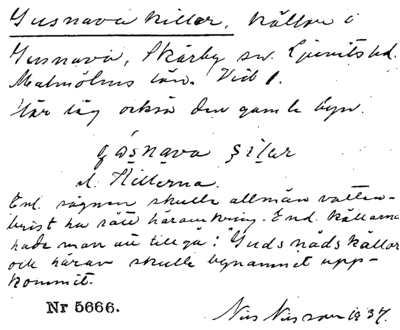 Gusnava killar. Källor i
Gusnava, Skårby sn. Ljunits hd.
Malmöhus län. Vid 1.
Här låg också den gamla byn.
gɑsnava ʂilar
l. Killerna.
Enl. sägnen skulle allmän vatten-
brist ha rått häromkring. End. källarna
hade man att tillgå: "Guds nåds källor
och härav skulle bynamnet upp-
kommit.
Nr 5666.
Nils Nilsson 1937.